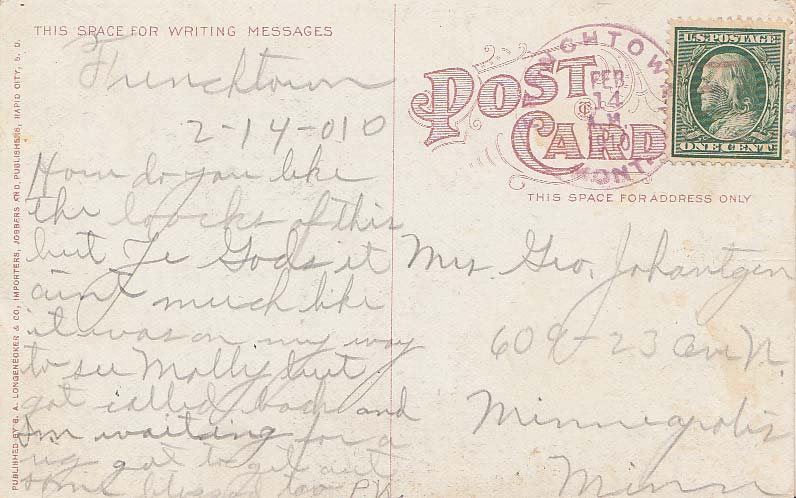 THIS SPACE FOR WRITING MESSAGES
Frenchtown
2-14-010
How do you like
the loocks of this
but Ye Gods it
aint much like
it was on my way
to see Molly but
got called back and
Im waiting for a
got to get out
some blessed too
PUBLISHED BY B. A. LONGENECKER & CO, IMPORTERS, JOBBERS AND PUBLISHERS, RAPID CITY, S. D.
POST
CARD
FEB
14
MONT
U.S. POSTAGE
ONE CENT
THIS SPACE FOR ADDRESS ONLY
Mrs. Geo. Johantgen
609-23 Ave N.
Minneapolis
Minn